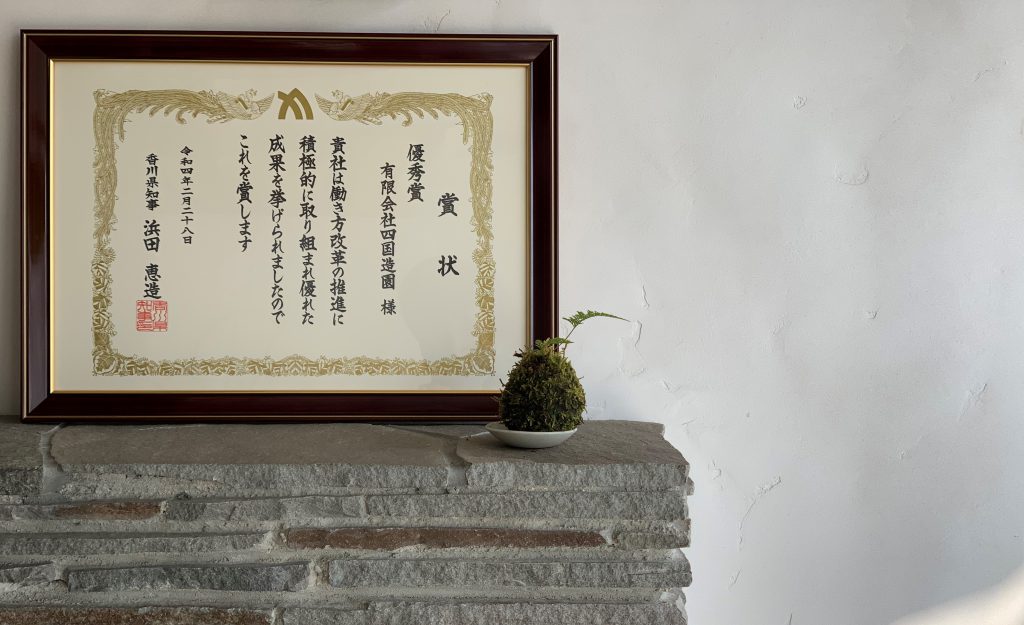 賞状
優秀賞
有限会社四国造園 様
貴社は働き方改革の推進に
積極的に取り組まれ優れた
成果を挙げられましたので
これを賞します
令和四年二月二十八日
香川県知事 浜田 恵造
香川県
知事印